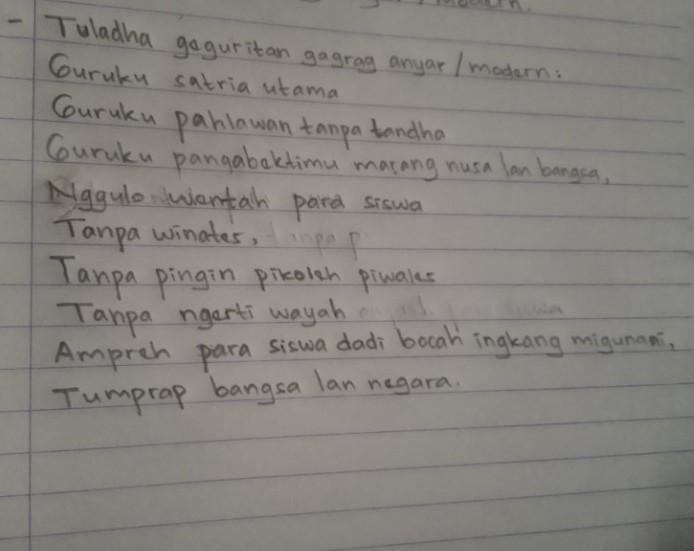 modern.
- Tuladha geguritan gagrag anyar / modern:
Guruku satria utama
Guruku pahlawan tanpa tandha
Guruku pangabektimu marang nusa lan bangsa,
Nggulo wentah para siswa
Tanpa winates,
Tanpa pingin pikoleh piwales
Tanpa ngerti wayah
Ampreh para siswa dadi bocah ingkang migunani,
Tumprap bangsa lan negara.